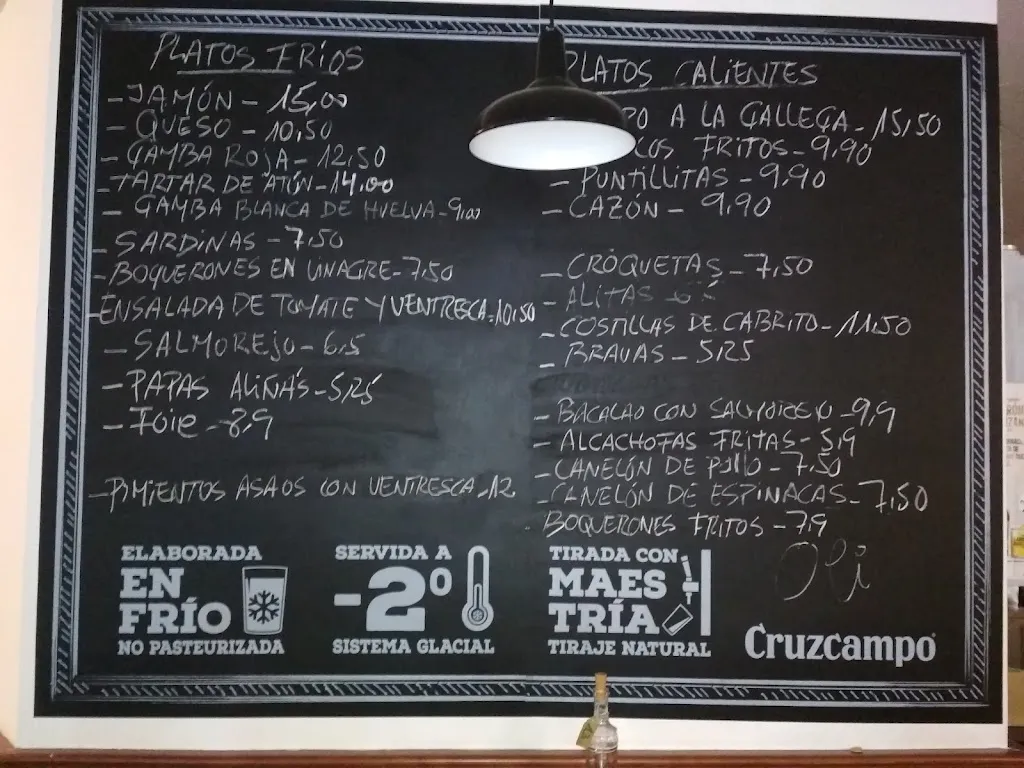 PLATOS FRÍOS
- JAMÓN - 15,00
- QUESO - 10,50
- GAMBA ROJA - 12,50
- TARTAR DE ATÚN - 14,00
- GAMBA BLANCA DE HUELVA - 9,00
- SARDINAS - 7,50
- BOQUERONES EN VINAGRE - 7,50
- ENSALADA DE TOMATE Y VENTRESCA - 10,50
- SALMOREJO - 6,5
- PAPAS ALIÑÁS - 5,25
- FOIE - 8,9
- PIMIENTOS ASAOS CON VENTRESCA - 12
PLATOS CALIENTES
PO A LA GALLEGA - 15,50
COS FRITOS - 9,90
- PUNTILLITAS - 9,90
- CAZÓN - 9,90
- CROQUETAS - 7,50
- ALITAS
- COSTILLAS DE CABRITO - 11,50
- BRAVAS - 5,25
- BACALAO CON SALMOREJO - 9,9
- ALCACHOFAS FRITAS - 5,9
- CANELÓN DE POLLO - 7,50
- CANELÓN DE ESPINACAS - 7,50
BOQUERONES FRITOS - 7,9
Oli
ELABORADA
EN
FRÍO
NO PASTEURIZADA
SERVIDA A
-2º
SISTEMA GLACIAL
TIRADA CON
MAES
TRÍA
TIRAJE NATURAL
Cruzcampo